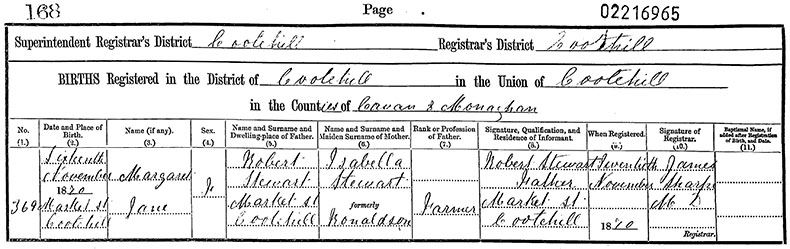 168 Page 02216965
Superintendent Registrar's District Cootehill Registrar's District Cootehill
BIRTHS Registered in the District of Cootehill in the Union of Cootehill
in the Counties of Cavan & Monaghan
No. (1.) Date and Place of Birth. (2.) Name (if any). (3.) Sex. (4.) Name and Surname and Dwelling-place of Father. (5.) Name and Surname and Maiden Surname of Mother. (6.) Rank or Profession of Father. (7.) Signature, Qualification, and Residence of Informant. (8.) When Registered. (9.) Signature of Registrar. (10.) Baptismal Name, if added after Registration of Birth, and Date. (11.)
369 November 1870 Market St Cootehill
Margaret Jane
F
Robert Stewart Market St Cootehill
Isabella Stewart formerly Ronaldson
Farmer
Robert Stewart Father Market St. Cootehill
November 1870
James Sharpe M D Registrar.